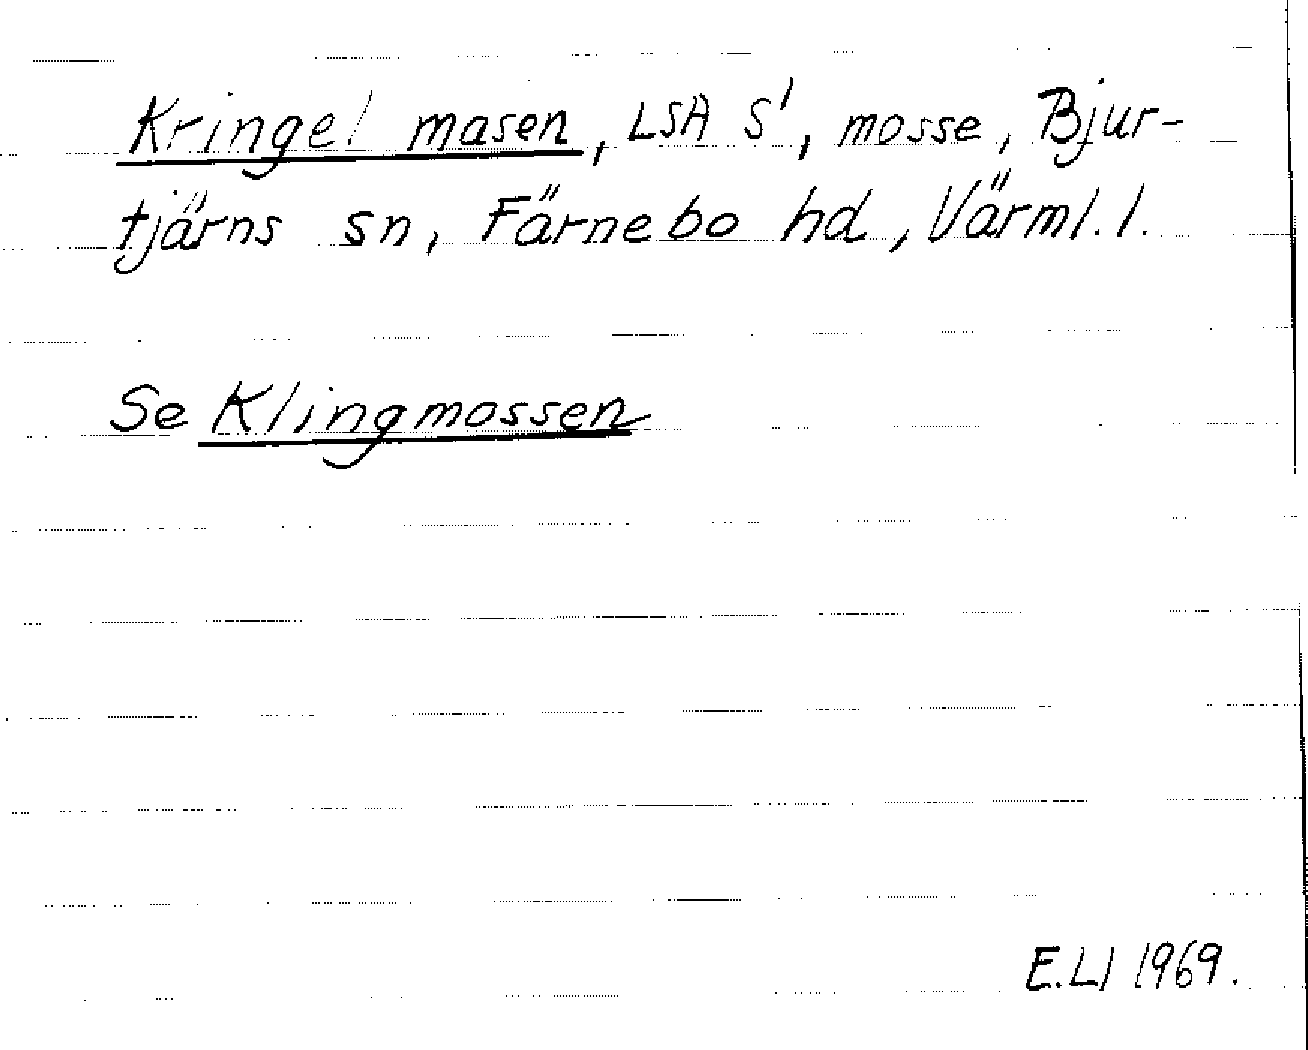 Kringel masen, LSA S', mosse, Bjur-
tjärns sn, Färnebo hd, Värml. l.
Se Klingmossen
E.Ll 1969.